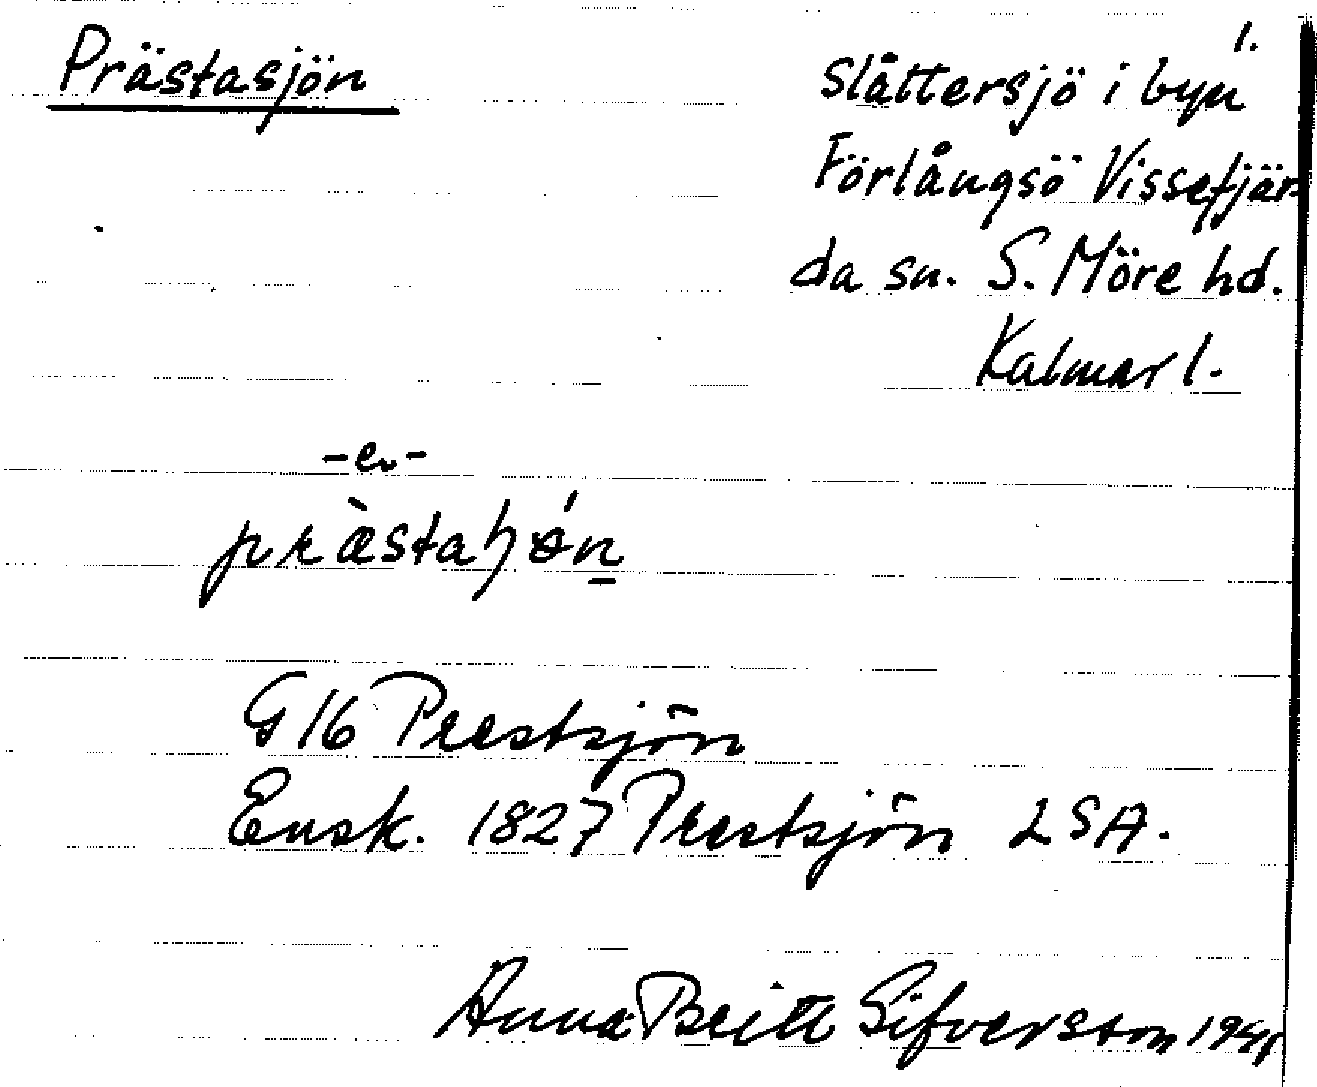 Prästasjön
1.
Slåttersjö i byn
Förlångsö Vissefjär-
da sn. S. Möre hd.
Kalmar l.
-e-
præstaɧǿn
G 16 Prestsjön
Ensk. 1827 Prestsjön LSA.
Anna Britt Sifverston